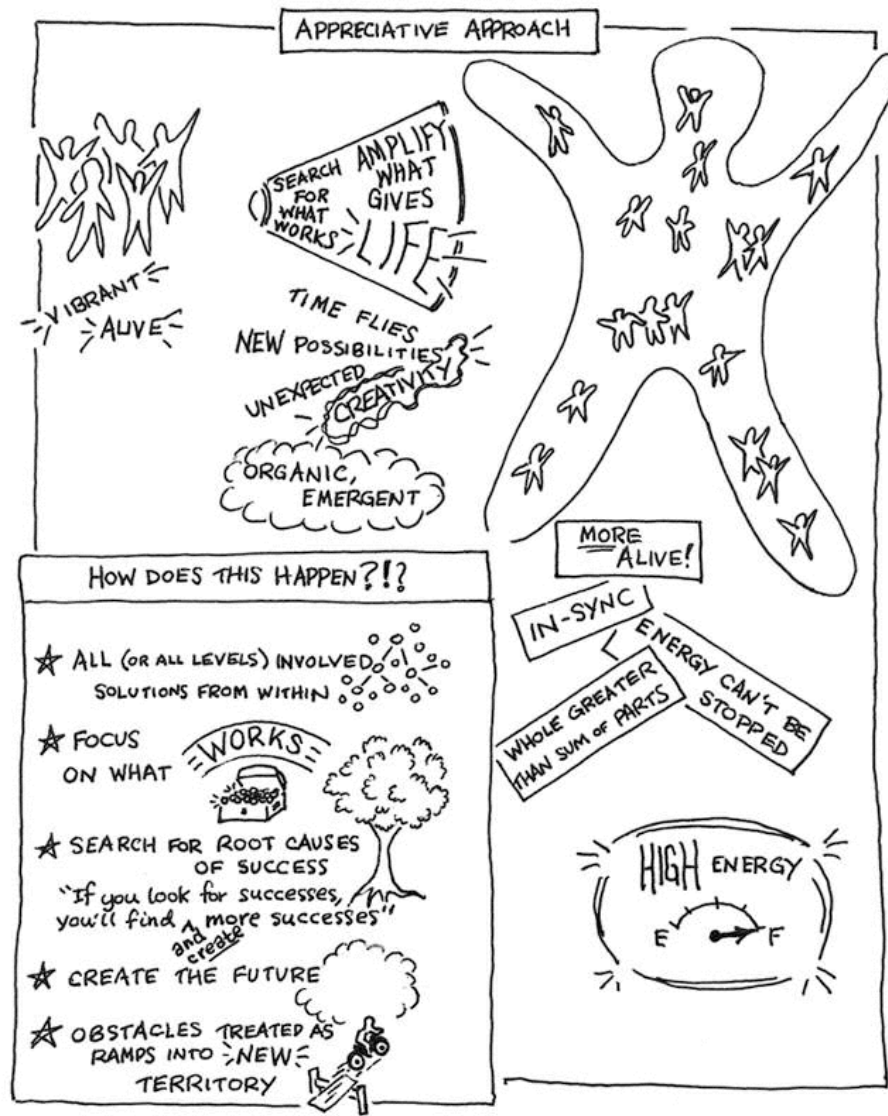 APPRECIATIVE APPROACH
SEARCH
FOR
WHAT
WORKS
AMPLIFY
WHAT
GIVES
LIFE
VIBRANT
ALIVE
TIME FLIES
NEW POSSIBILITIES
UNEXPECTED
CREATIVITY
ORGANIC,
EMERGENT
MORE
ALIVE!
IN-SYNC
ENERGY CAN'T BE
STOPPED
WHOLE GREATER
THAN SUM OF PARTS
HIGH ENERGY
E F
HOW DOES THIS HAPPEN?!?
ALL (OR ALL LEVELS) INVOLVED
SOLUTIONS FROM WITHIN
FOCUS
ON WHAT
WORKS
SEARCH FOR ROOT CAUSES
OF SUCCESS
"If you look for successes,
you'll find ^ more successes"
and
create
CREATE THE FUTURE
OBSTACLES TREATED AS
RAMPS INTO NEW
TERRITORY